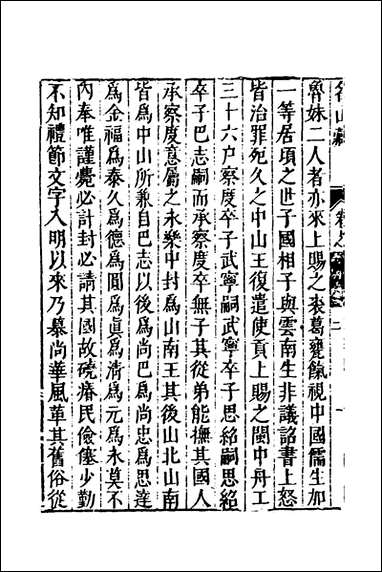 名山藏
魯妹二人者亦來上賜之裘葛饔餼視中國儒生加
一等居頃之世子國相子與雲南生非議詔書上怒
皆治罪死久之中山王復遣使貢上賜之閩中舟工
三十六户察度卒子武寧嗣武寧卒子思紹嗣思紹
卒子巴志嗣而承察度卒無子其從弟能撫其國人
承察度意屬之永樂中封爲山南王其後山北山南
皆爲中山所兼自巴志以後爲尚巴爲尚忠爲思達
爲金福爲泰久爲德爲圓爲眞爲清爲元爲永莫不
內奉唯謹薨必計封必請其國故磽瘠民儉嗇少勤
不知禮節文字入明以來乃慕尚華風革其舊俗從